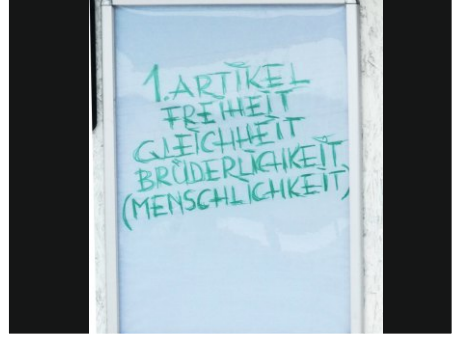 1. ARTIKEL
FREIHEIT
GLEICHHEIT
BRÜDERLICHKEIT
(MENSCHLICHKEIT)